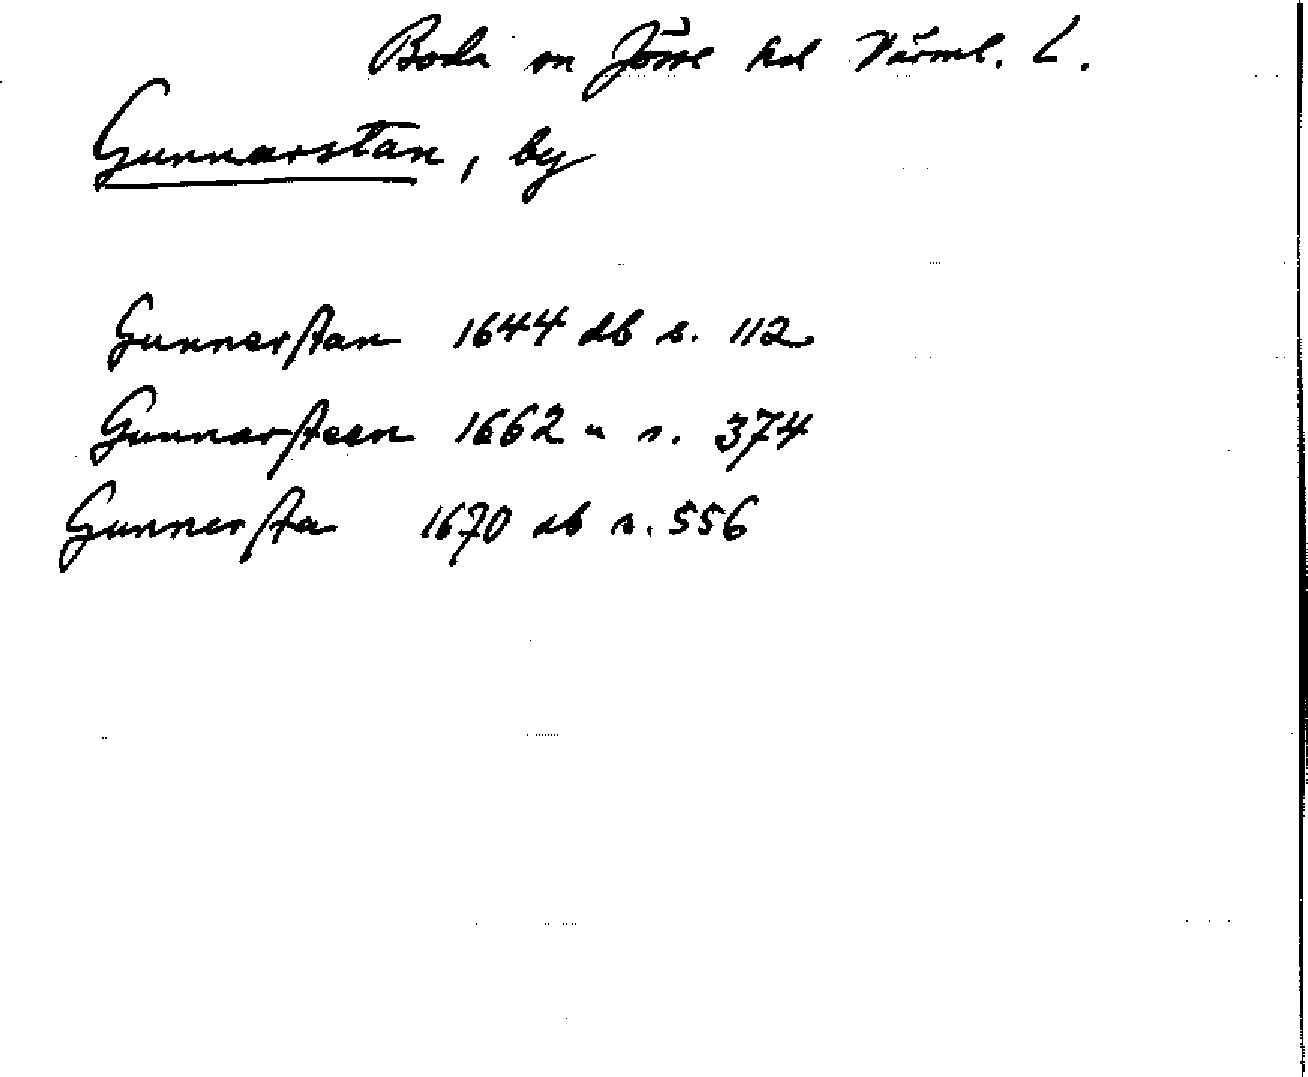 Boda sn Jösse hd Värml. L.
Gunnarstan, by
Gunnerstan 1644 db s. 112
Gunnarsteen 1662 " s. 374
Gunnersta 1670 db s. 556